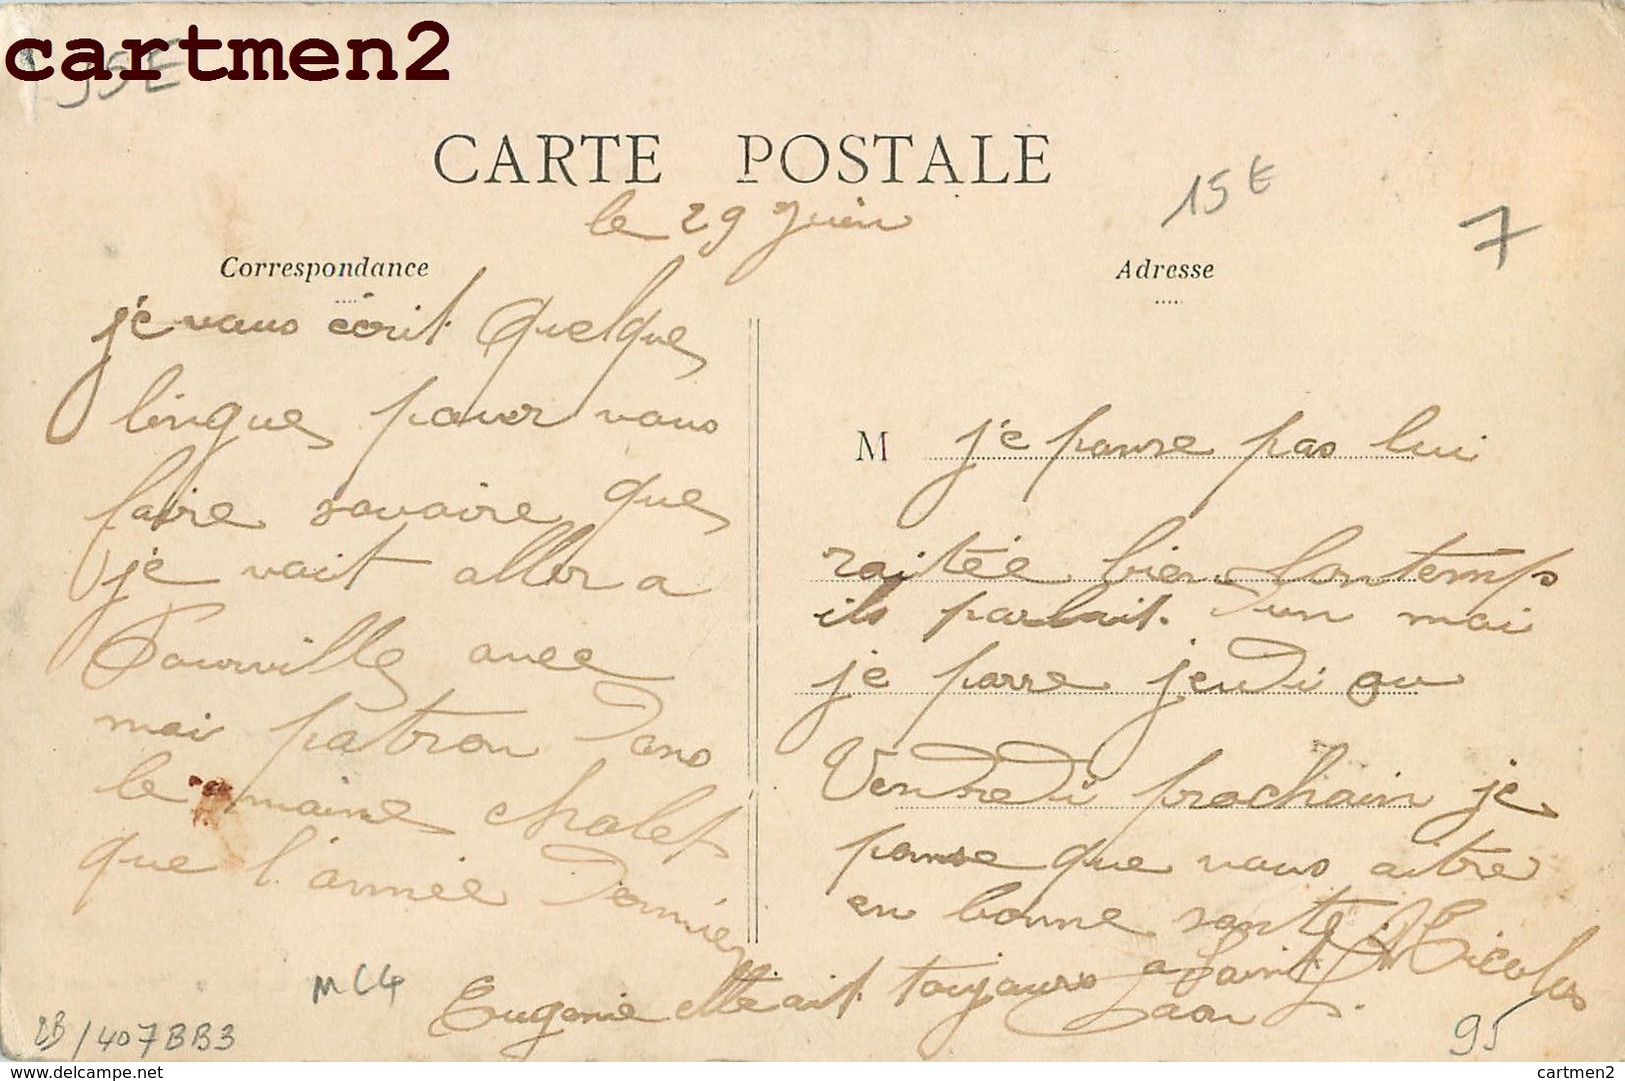 cartmen2
95E
CARTE POSTALE
le 29 Juin
15E
7
Correspondance
Adresse
je vous écrit quelques
lingues pouer vous
faire savaire ques
je vait aller a
Pourville avec
moi patron dans
le maime chalet
que l'année dernier
M je panse pas lui
raitée bien lontemps
ils parlait d'un moi
je parre jeudi ou
Vendredi prochain je
panse que vous aitre
en bonne santé
Eugenie ait toujours a Saint Nicolas
MCC4
2B/407BB3
95
https://www.delcampe.net
cartmen2